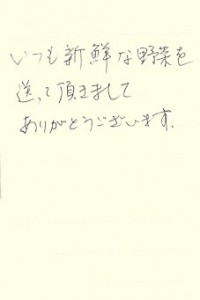 いつも新鮮な野菜を
送って頂きまして
ありがとうございます.